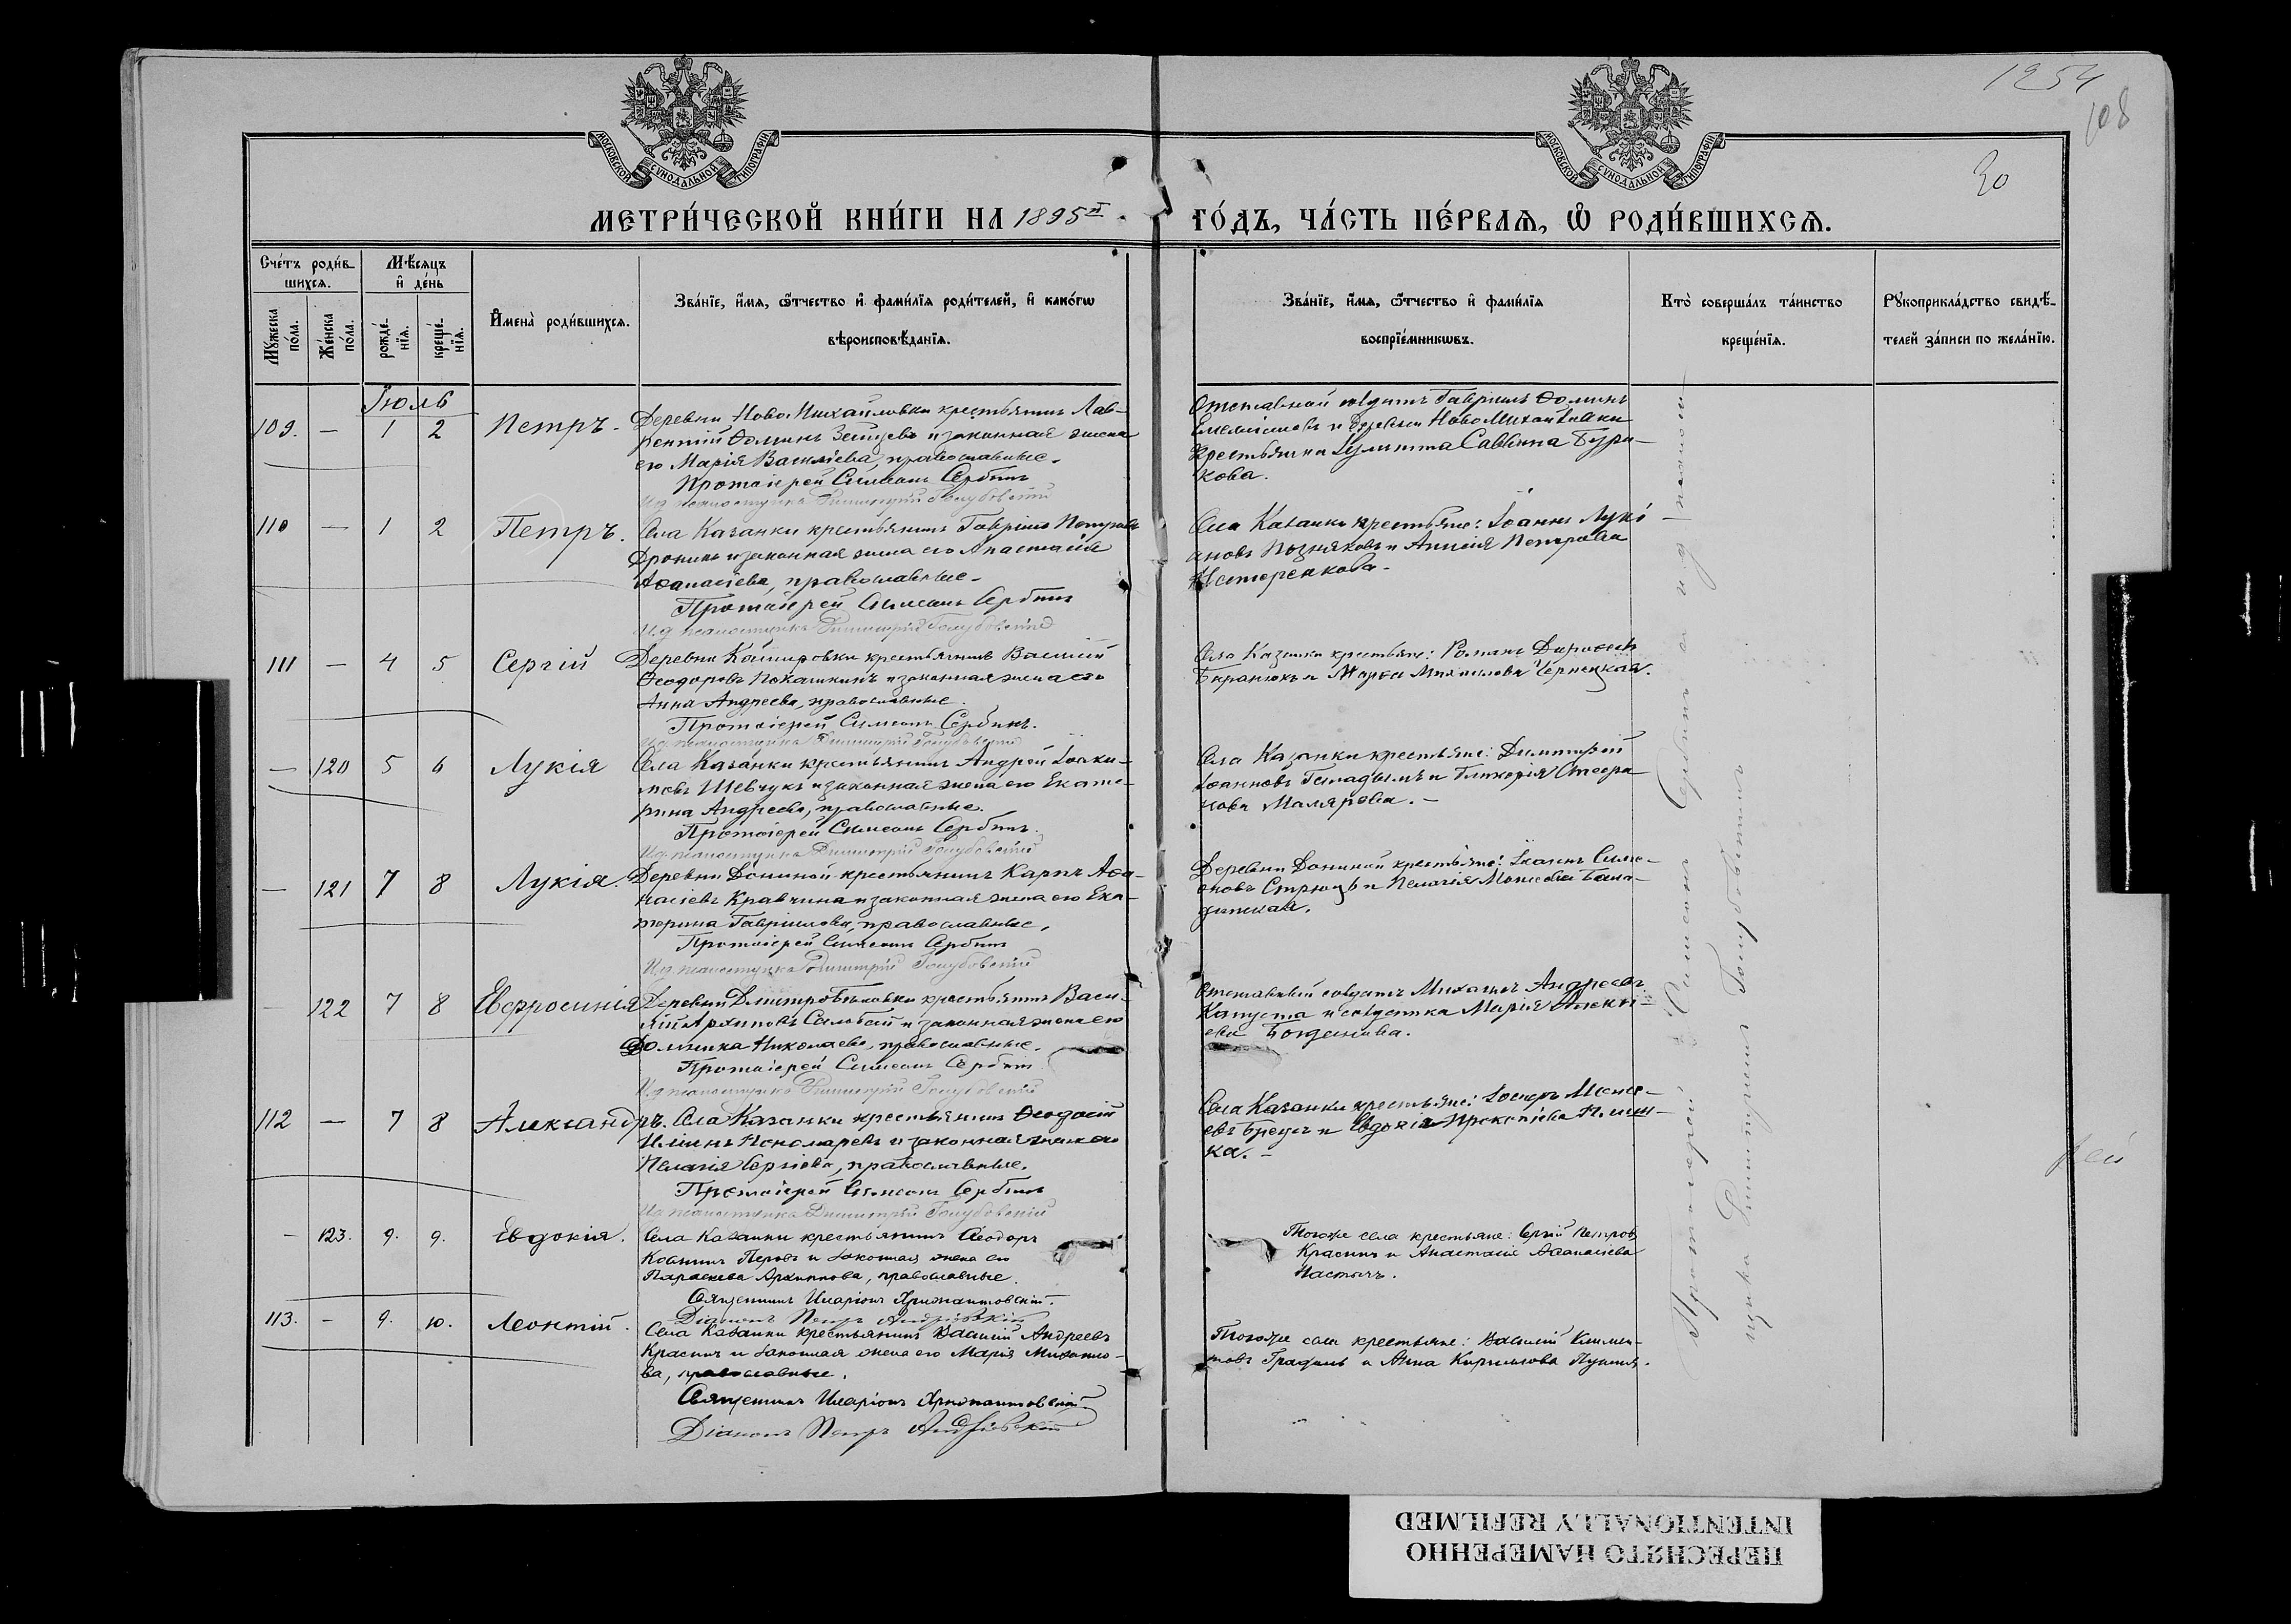 1254
108
30
МОСКОВСКОЙ СѴНОДАЛЬНОЙ ТИПОГРАФІИ
МОСКОВСКОЙ СѴНОДАЛЬНОЙ ТИПОГРАФІИ
МЕТРИ́ЧЕСКОЙ КНИ́ГИ НА 1895й ГО́ДЪ, ЧА́СТЬ ПЕ́РВАѦ, Ѡ҆ РОДИ́ВШИХСѦ.
Сче́тъ роди́в-
шихсѧ.
Му́жеска по́ла.
Же́нска по́ла.
Мѣ́сяцъ
и҆ де́нь
рожде́-нїѧ.
креще́-нїѧ.
И҆мена̀ роди́вшихсѧ.
Зва́нїе, и҆́мѧ, ѻ҆́тчество и҆ фами́лїѧ роди́телей, и҆ како́гѡ
вѣроисповѣ́данїѧ.
Зва́нїе, и҆́мѧ, ѻ҆́тчество и҆ фами́лїѧ
воспрїе́мникѡвъ.
Кто̀ соверша́лъ та́инство
креще́нїѧ.
Рꙋкоприкла́дство свидѣ́-
телей за́писи по жела́нїю.
Іюль
109. — 1 2 Петръ. Деревни Ново Михайловки крестьянинъ Лав-
рентій Ѳоминъ Зайцевъ и законная жена
его Марія Васильева, православные.
Протоіерей Симеонъ Сербинъ
И.д. псаломщика Димитрій Голубовскій
Отставной солдатъ Гавріилъ Ѳоминъ
и деревни Ново Михайловки
крестьянка Улитта Саввина Бура-
кова.
110 — 1 2 Петръ. Села Казанки крестьянинъ Гавріилъ Петровъ
Дронинъ и законная жена его Анастасія
Аѳанасіева, православные.
Протоіерей Симеонъ Сербинъ
И.д. псаломщика Димитрій Голубовскій
Села Казанки крестьяне: Іоаннъ Лукі-
ановъ Позняковъ и Анисія Петрова
Нестеренкова.
111 — 4 5 Сергій Деревни Кашировки крестьянинъ Василій
Ѳеодоровъ Покашкинъ и законная жена его
Анна Андреева, православные.
Протоіерей Симеонъ Сербинъ.
И.д. псаломщика Димитрій Голубовскій
Села Казанки крестьяне: Романъ
Баранюкъ и Марѳа Михаилова Чернецкая.
— 120 5 6 Лукія Села Казанки крестьянинъ Андрей Іоаки-
мовъ Шевчукъ и законная жена его Екате-
рина Андреева, православные.
Протоіерей Симеонъ Сербинъ.
И.д. псаломщика Димитрій Голубовскій
Села Казанки крестьяне: Димитрій
Іоанновъ и Гликерія Стефа-
нова Малярова. —
— 121 7 8 Лукія. Деревни Дониной крестьянинъ Карпъ Аѳа-
насіевъ Кравчина и законная жена его Ека-
терина Гавріилова, православные.
Протоіерей Симеонъ Сербинъ
И.д. псаломщика Димитрій Голубовскій
Деревни Дониной крестьяне: Іоаннъ Симе-
оновъ Стрюцъ и Пелагія Моисеева
— 122 7 8 Евфросинія Деревни крестьянинъ Васи-
лій Архиповъ и законная жена его
Домника Николаева, православные.
Протоіерей Симеонъ Сербинъ
И.д. псаломщика Димитрій Голубовскій
Отставный солдатъ Михаилъ Андреевъ
Капуста и солдатка Марія Алексі-
ева Богданова.
112 — 7 8 Александръ. Села Казанки крестьянинъ Ѳеодосій
Ильинъ Пономаревъ и законная жена его
Пелагія Сергіева, православные.
Протоіерей Симеонъ Сербинъ
И.д. псаломщика Димитрій Голубовскій
Села Казанки крестьяне: Іосифъ Моисе-
евъ и Евдокія Прокопіева
— 123. 9. 9. Евдокія. Села Казанки крестьянинъ Ѳеодоръ
Перовъ и законная жена его
Параскева Архиппова, православные.
Священникъ Иларіонъ Хржановскій.
Діаконъ Петръ Андріевскій
Тогоже села крестьяне: Сергій Петровъ
Красинъ и Анастасія Аѳанасіева
113. — 9. 10. Леонтій. Села Казанки крестьянинъ Василій Андреевъ
Красинъ и законная жена его Марія Михаило-
ва, православные.
Священникъ Иларіонъ
Діаконъ Петръ Андріевскій
Тогоже села крестьяне: Василій Климен-
товъ и Анна Кириллова
Протоіерей Симеонъ Сербинъ и и.д. псалом-
щика Димитрій Голубовскій
ПЕРЕСНЯТО НАМЕРЕННО
INTENTIONALLY REFILMED